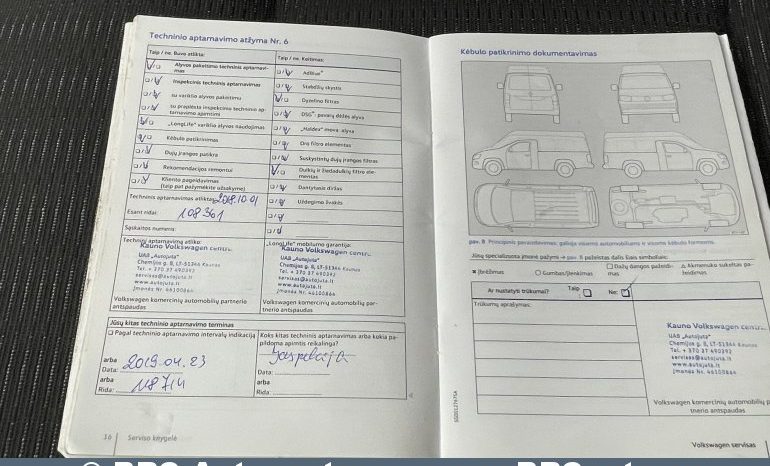 Techninio aptarnavimo atžyma Nr. 6
Taip / ne. Buvo atlikta:
Alyvos pakeitimo techninis aptarnavi-
mas
Inspekcinis techninis aptarnavimas
su variklio alyvos pakeitimu
su praplėsta inspekcinio techninio ap-
tarnavimo apimtimi
„LongLife“ variklio alyvos naudojimas
Kėbulo patikrinimas
Dujų įrangos patikra
Rekomendacijos remontui
Kliento pageidavimas
(taip pat pažymėkite užsakyme)
Techninis aptarnavimas atliktas: 2018.10.01
Esant ridai: 108361
Sąskaitos numeris:
Taip / ne. Keitimas:
AdBlue®
Stabdžių skystis
Dyzelino filtras
DSG® pavarų dėžės alyva
„Haldex“ mova alyva
Oro filtro elementas
Suskystintų dujų įrangos filtras
Dulkių ir žiedadulkių filtro ele-
mentas
Dantytasis diržas
Uždegimo žvakės
Techninį aptarnavimą atliko:
Kauno Volkswagen centras
UAB „Autojuta“
Chemijos g. 8, LT-51344 Kaunas
Tel. + 370 37 490392
servisas@autojuta.lt
www.autojuta.lt
Volkswagen komercinių automobilių partnerio
antspaudas
„LongLife“ mobilumo garantija:
Kauno Volkswagen centr
UAB „Autojuta“
Chemijos g. 8, LT-51344 Kaunas
Tel. + 370 37 490392
servisas@autojuta.lt
www.autojuta.lt
Volkswagen komercinių automobilių par-
tnerio antspaudas
Jūsų kitas techninio aptarnavimo terminas
Pagal techninio aptarnavimo intervalų indikaciją
arba
Data: 2019.04.23
arba
Rida: 118714
Koks kitas techninis aptarnavimas arba kokia pa-
pildoma apimtis reikalinga?
Data:
arba
Rida:
16 Serviso knygelė
Kėbulo patikrinimo dokumentavimas
Jūsų specializuota įmonė pažymi → pav. 8 pažeistas dalis šiais simboliais:
Įbrėžimas
Gumbas/Įlenkimas
Dažų dangos pažeidi-
mas
Akmenuko sukeltas pa-
žeidimas
Ar nustatyti trūkumai?
Taip
Ne:
Trūkumų aprašymas:
Kauno Volkswagen centr
UAB „Autojuta“
Chemijos g. 8, LT-51344 Kaunas
Tel. + 370 37 490392
servisas@autojuta.lt
www.autojuta.lt
Volkswagen komercinių automobilių p
tnerio antspaudas
Volkswagen servisas